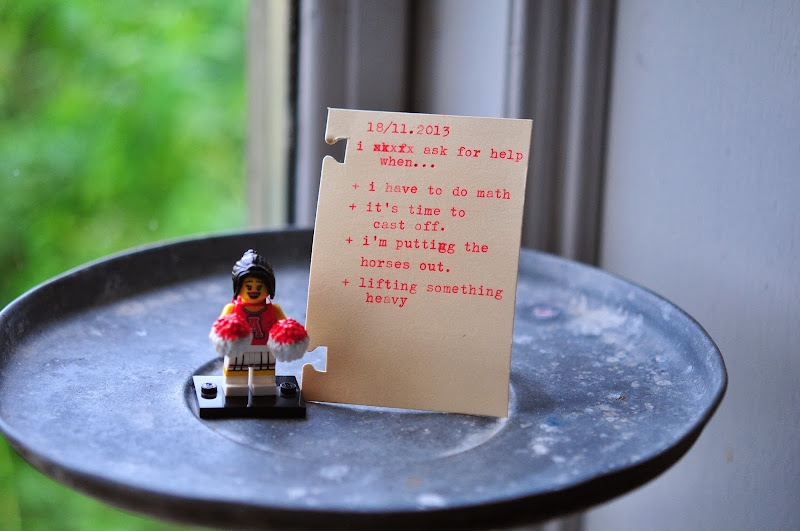 18/11.2013
i ask for help
when...
+ i have to do math
+ it's time to
cast off.
+ i'm putting the
horses out.
+ lifting something
heavy
A